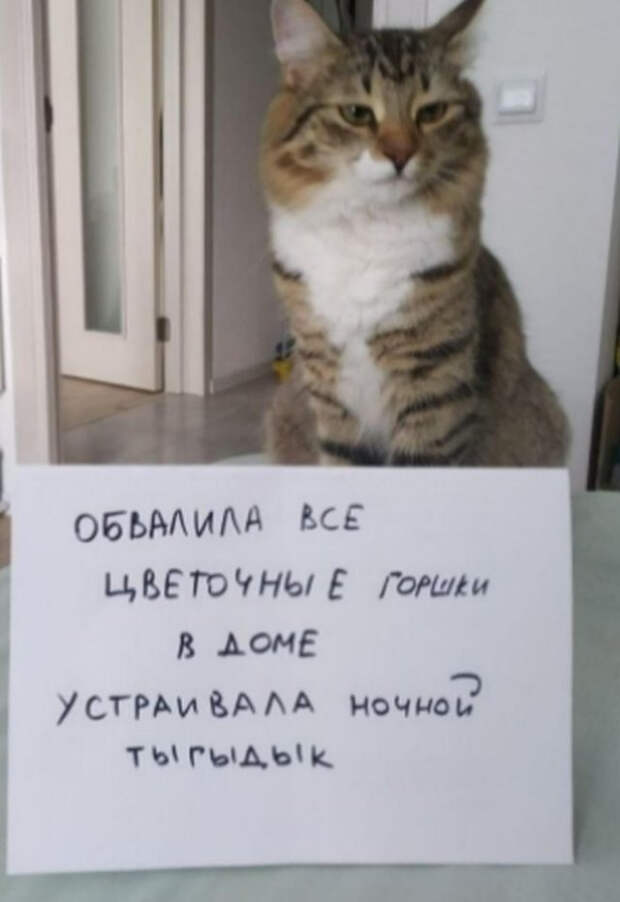 ОБВАЛИЛА ВСЕ
ЦВЕТОЧНЫЕ ГОРШКИ
В ДОМЕ
УСТРАИВАЛА НОЧНОЙ
ТЫГЫДЫК